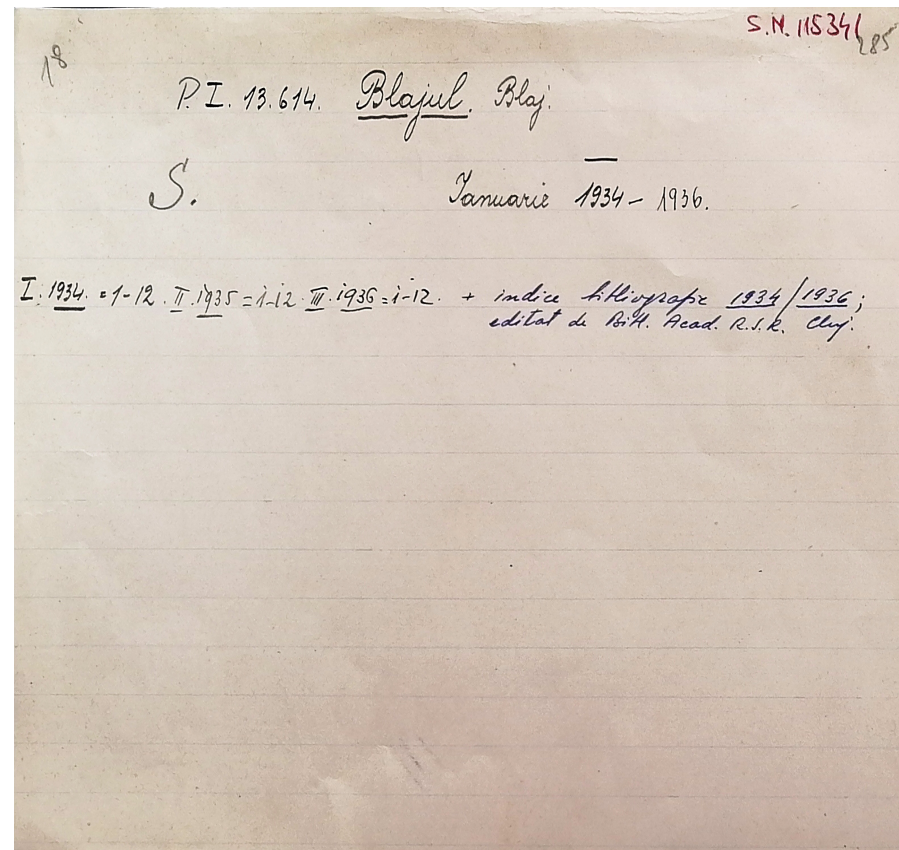 S.N. 11534/
285
18
P. I. 13.614. Blajul. Blaj.
S. Ianuarie 1934 – 1936.
I. 1934. = 1-12. II. 1935 = 1-12. III. 1936 = 1-12. + indice bibliografic 1934/1936;
editat de Bibl. Acad. R.S.R. Cluj.